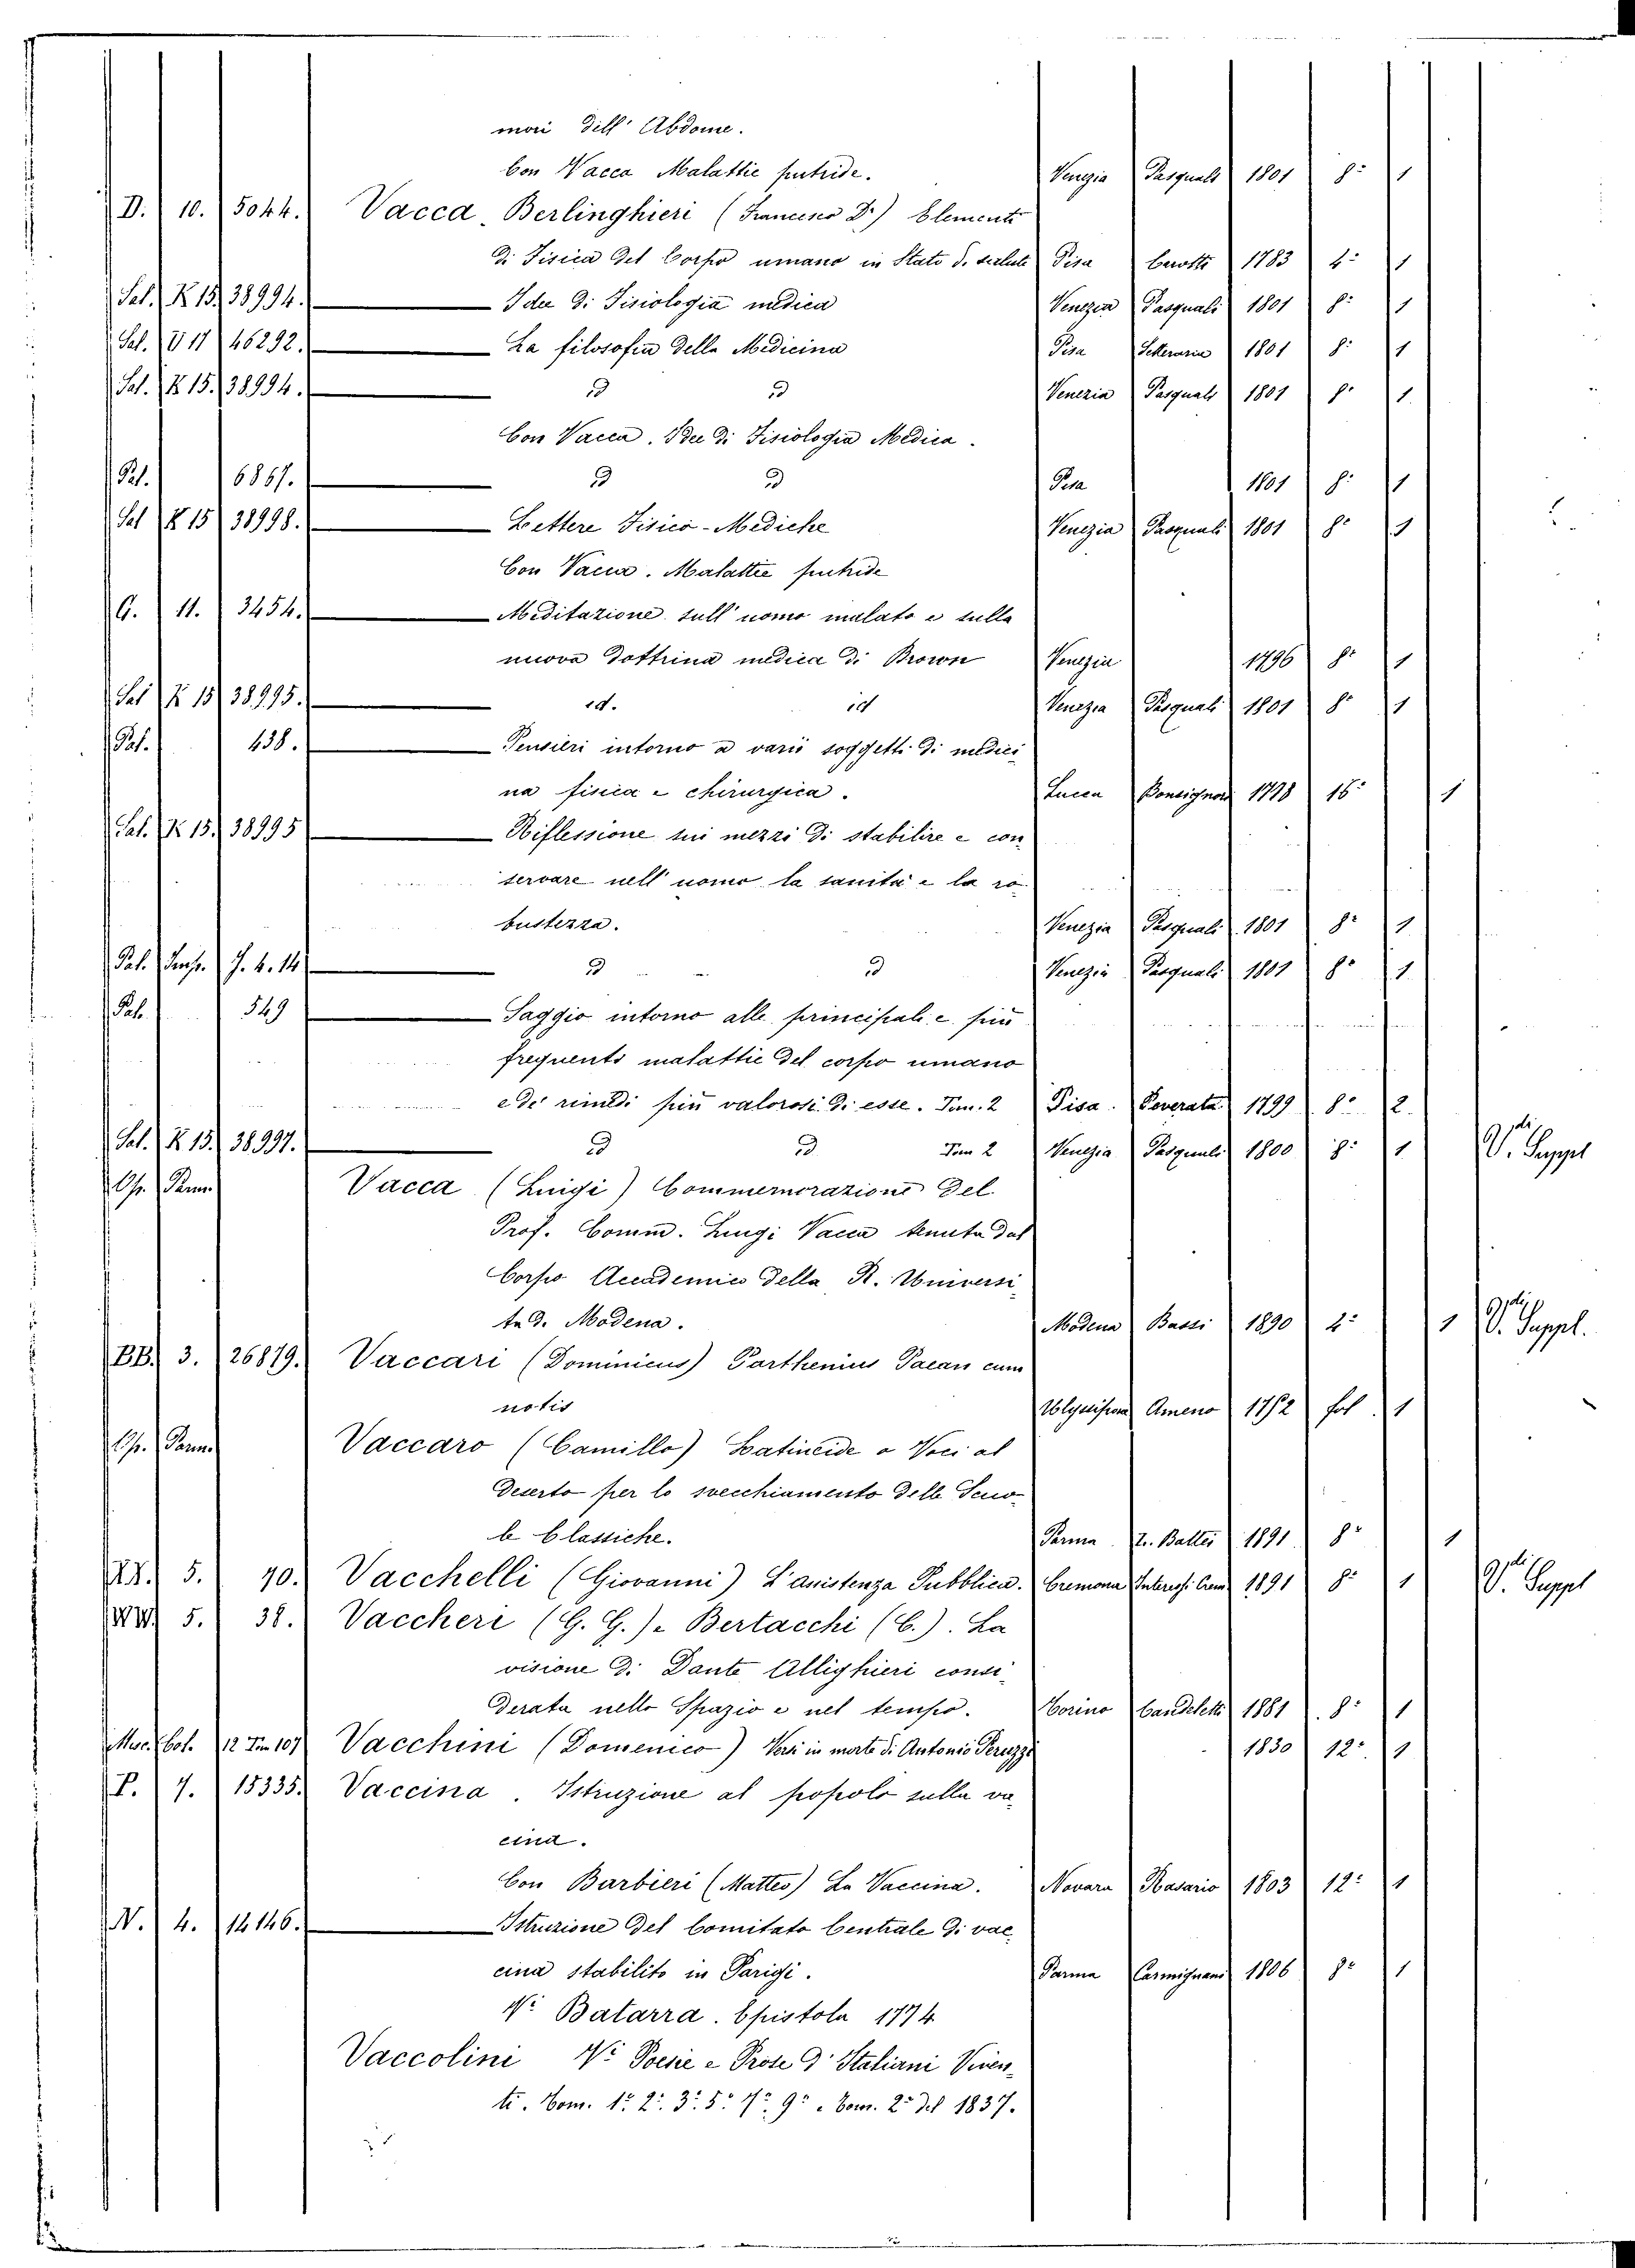 mori dell' Abdome.
Con Vacca Malattie putride. Venezia Pasquali 1801 8° 1
D. 10. 5044. Vacca Berlinghieri (Francesco Dr) Elementi
di Fisica del Corpo umano in Stato di salute Pisa 1783 4° 1
Sal. K 15. 38994. Idee di Fisiologia medica Venezia Pasquali 1801 8° 1
Sal. 11 46292. La filosofia della Medicina Pisa Letteraria 1801 8° 1
Sal. K 15. 38994. id id Venezia Pasquali 1801 8° 1
Con Vacca. Idee di Fisiologia Medica.
Pal. 6867. id id Pisa 1801 8° 1
Sal K 15 38998. Lettere Fisico-Mediche Venezia Pasquali 1801 8° 1
Con Vacca. Malattie putride
G. 11. 3454. Meditazione sull' uomo malato e sulla
nuova dottrina medica di Brown Venezia 1796 8° 1
Sal K 15 38995. id. id Venezia Pasquali 1801 8° 1
Pal. 438. Pensieri intorno a varii soggetti di medici
na fisica e chirurgica. Lucca Bonsignori 1778 16° 1
Sal. K 15. 38995 Riflessione sui mezzi di stabilire e con
servare nell' uomo la sanità e la ro
bustezza. Venezia Pasquali 1801 8° 1
Pal. J. 4. 14 id id Venezia Pasquali 1801 8° 1
Pal. 549 Saggio intorno alle principali e più
frequenti malattie del corpo umano
e de' rimedi più valorosi di esse. Tom. 2 Pisa. Peverata 1799 8° 2.
Sal. K 15. 38997. id id Tom 2 Venezia Pasquali 1800 8° 1 V. Suppl
Op. Parm. Vacca (Luigi) Commemorazione del
Prof. Comm. Luigi Vacca tenuta dal
Corpo Accademico della R. Universi
ta di Modena. Modena Bassi 1890 4° 1 V. Suppl.
BB. 3. 26879. Vaccari (Dominicus) Parthenius Paean cum
notis Ulyssipona Ameno 1752 fol. 1
Op. Parm. Vaccaro (Camillo) Latineide o Voci al
deserto per lo svecchiamento delle Scuo-
le Classiche. Parma Battei 1891 8° 1
5. 70. Vacchelli (Giovanni) L'Assistenza Pubblica. Cremona Interessi Crem 1891 8° 1 V. Suppl
WW. 5. 38. Vaccheri (G. G.) e Bertacchi (C.). La
visione di Dante Allighieri consi-
derata nello Spazio e nel tempo. Torino Candeletti 1881 8° 1
Misc. Col. 12 Tm 107 Vacchini (Domenico) Versi in morte di Antonio Peruzzi 1830 12° 1
P. 7. 15335. Vaccina. Istruzione al popolo sulla va
cina.
Con Barbieri (Matteo) La Vaccina. Novara Rasario 1803 12° 1
N. 4. 14146. Istruzione del Comitato Centrale di vac
cina stabilito in Parigi. Parma Carmignani 1806 8° 1
Vi Batarra. Epistola 1774
Vaccolini Vi Poesie e Prose d' Italiani Viven-
ti. Tom. 1° 2° 3° 5° 7° 9° e Tom. 2° del 1837.